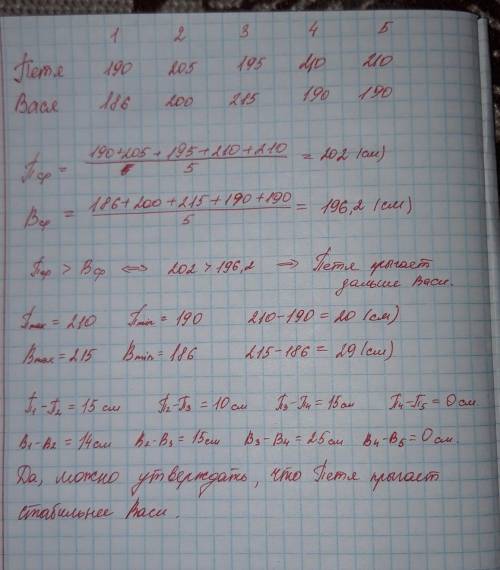 1 2 3 4 5
Петя 190 205 195 210 210
Вася 186 200 215 190 190
Пср = (190+205+195+210+210)/5 = 202 (см)
Вср = (186+200+215+190+190)/5 = 196,2 (см)
Пср > Вср ⟺ 202 > 196,2 ⟹ Петя прыгает
дальше Васи.
Пmax = 210 Пmin = 190 210-190 = 20 (см)
Вmax = 215 Вmin = 186 215-186 = 29 (см)
П1-П2 = 15 см П2-П3 = 10 см П3-П4 = 15 см П4-П5 = 0 см.
В1-В2 = 14 см В2-В3 = 15 см В3-В4 = 25 см В4-В5 = 0 см.
Да, можно утверждать, что Петя прыгает
стабильнее Васи.